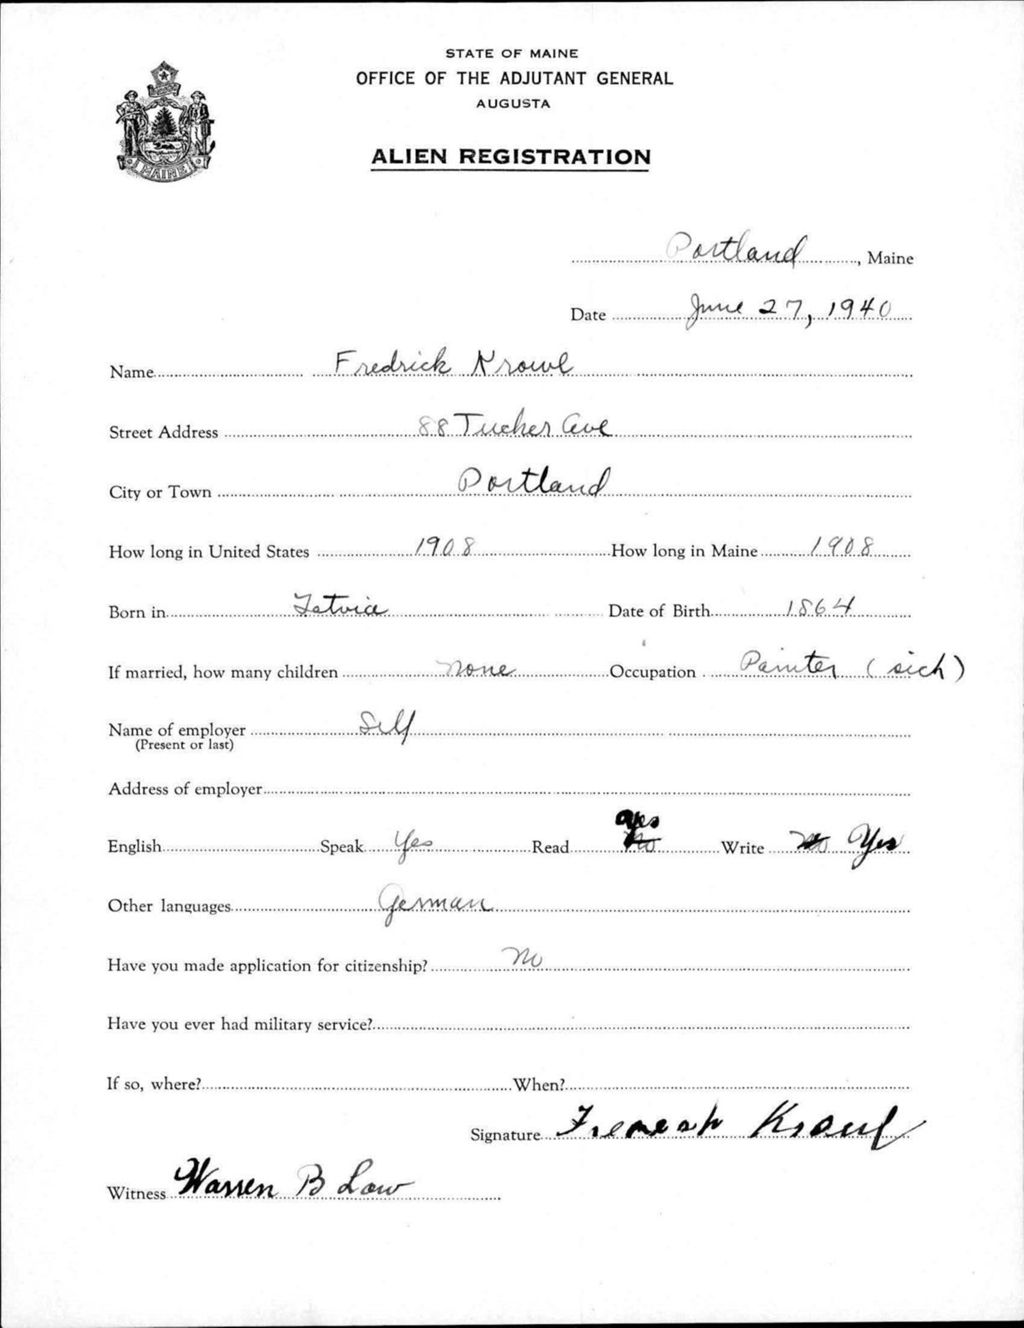 STATE OF MAINE
OFFICE OF THE ADJUTANT GENERAL
AUGUSTA
ALIEN REGISTRATION
MAINE
Portland, Maine
Date June 27, 1940
Name Fredrick Krowl
Street Address 88 Tucker Ave
City or Town Portland
How long in United States 1908 How long in Maine 1908
Born in Latvia Date of Birth 1864
If married, how many children None Occupation Painter (sick)
Name of employer Self
(Present or last)
Address of employer
English Speak Yes Read No yes Write No Yes
Other languages German
Have you made application for citizenship? No
Have you ever had military service?
If so, where? When?
Signature Krowl
Witness Warren B Low